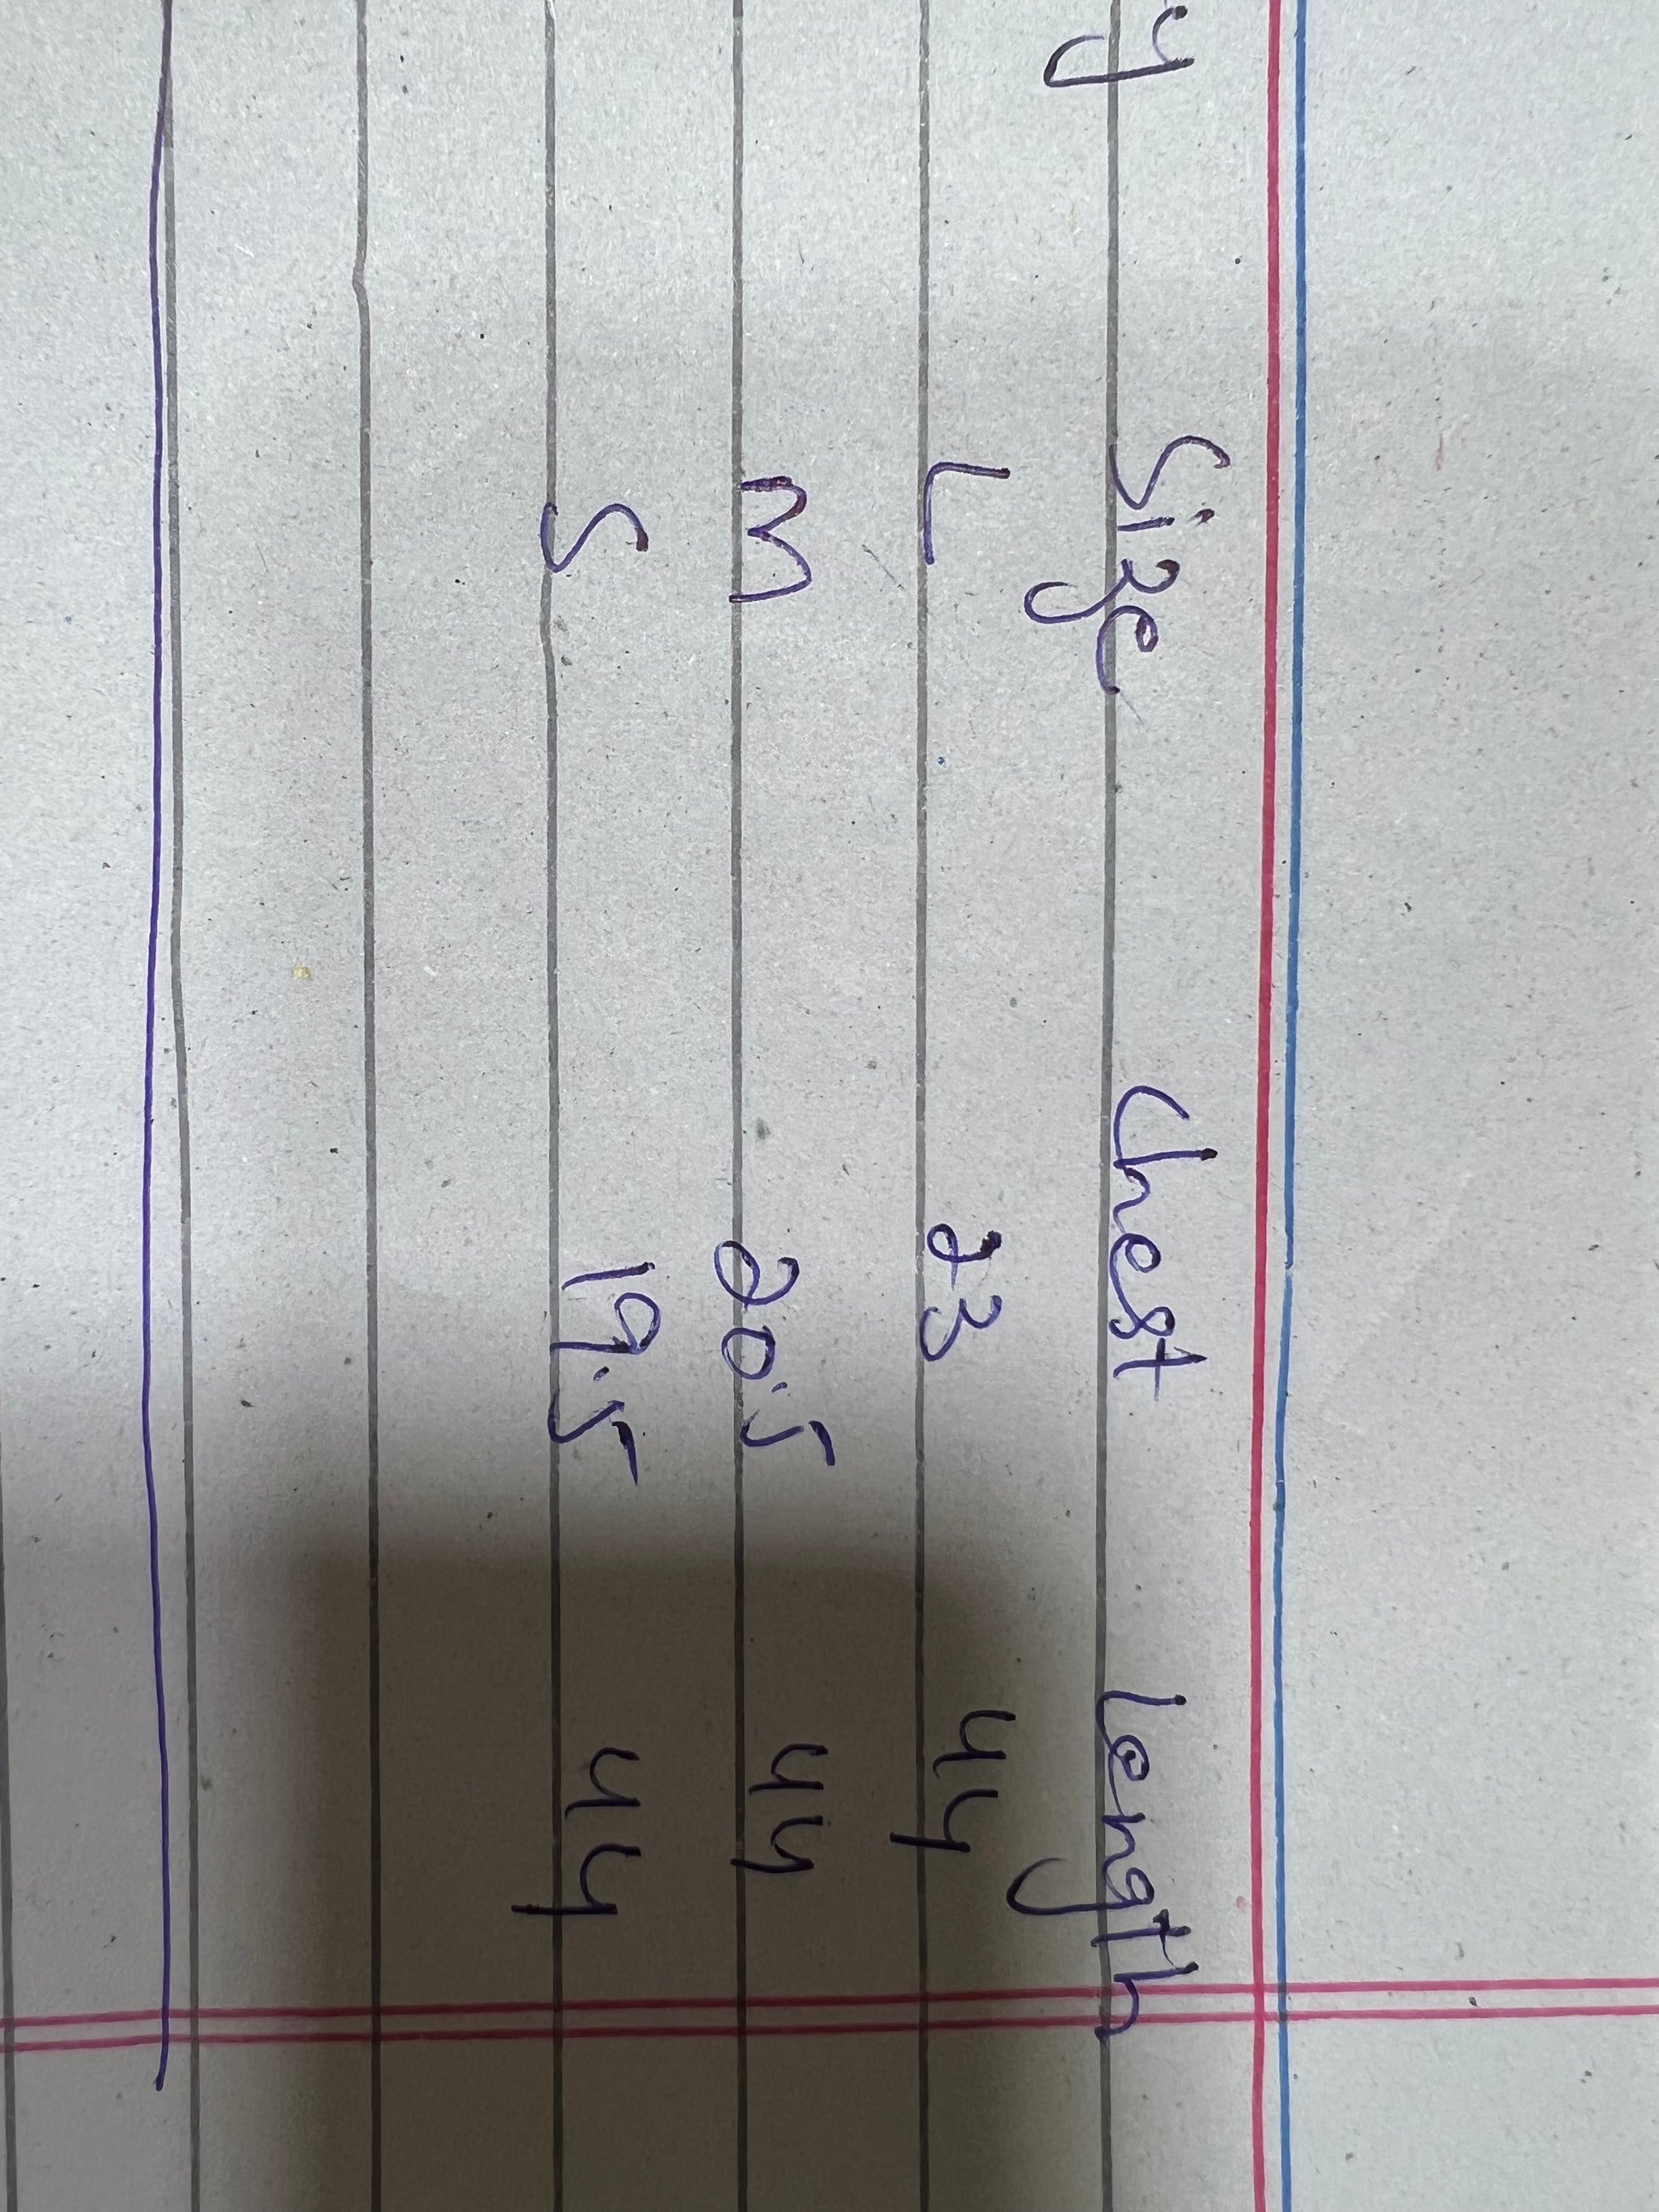 y Size Chest Length
L 23 44
M 20.5 44
S 19.5 44